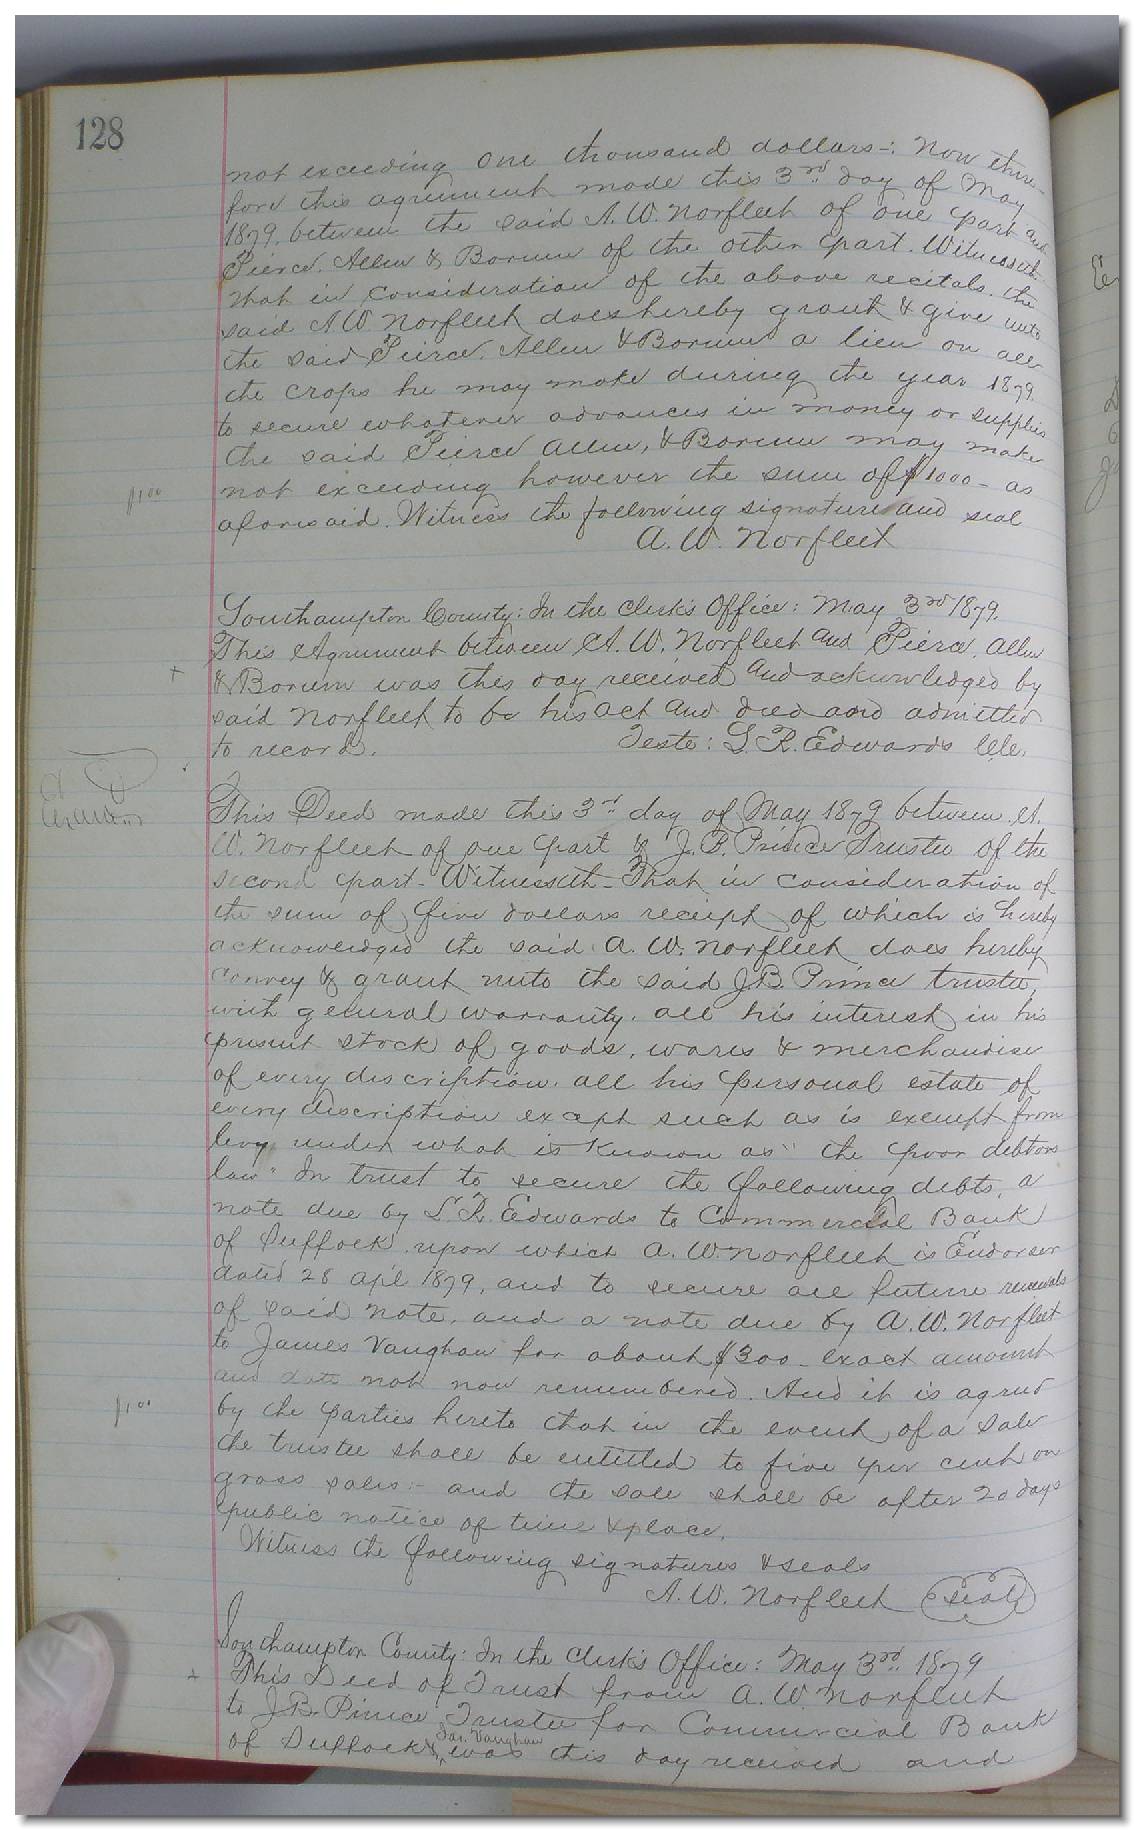 128
not exceeding One thousand dollars-: Now there-
fore this agreement made this 3rd day of May
1879. between the said A. W. Norfleet of one part and
Pierce. Allen & Borum of the other part. Witnesseth
that in consideration of the above recitals. the
said A W Norfleet does hereby grant & give unto
the said Pierce. Allen & Borum a lien on all
the crops he may make during the year 1879.
to secure whatever advances in money or supplies
the said Pierce Allen, & Borum may make
not exceeding however the sum of $1000- as
$1.00
aforesaid. Witness the following signature and seal
A. W. Norfleet
Southampton County: In the Clerk's Office: May 3rd 1879.
This Agreement between A. W. Norfleet and Pierce. Allen
+ & Borum was this day received and acknowledged by
said Norfleet to be his act and deed and admitted
to record. Teste: L. R. Edwards Clk.
This Deed made this 3rd day of May 1879 between A.
W. Norfleet of one part & J. B. Prince Trustee of the
second part- Witnesseth- That in consideration of
the sum of five dollars receipt of which is hereby
acknowledged the said A. W. Norfleet does hereby
convey & grant unto the said J B. Prince trustee,
with general warranty. all his interest in his
present stock of goods, wares & merchandise
of every discription. all his personal estate of
every discription except such as is exempt from
levy under what is known as "the poor debtors
law" In trust to secure the following debts, a
note due by L. R. Edwards to Commercial Bank
of Suffolk upon which A. W. Norfleet is Endorser
dated 28 Apl 1879, and to secure all future renewals
of said note, and a note due by A. W. Norfleet
to James Vaughan for about $300- exact amount
and date not now remembered. And it is agreed
$1.00
by the parties hereto that in the event of a sale
the trustee shall be entitled to five per cent on
gross sales:- and the sale shall be after 20 days
public notice of time & place.
Witness the following signatures & seals
A. W. Norfleet seal
Southampton County: In the Clerk's Office: May 3rd 1879
+ This Deed of Trust from A. W. Norfleet
to J. B. Prince Trustee for Commercial Bank
of Suffolk & Jas. Vaughan was this day received and